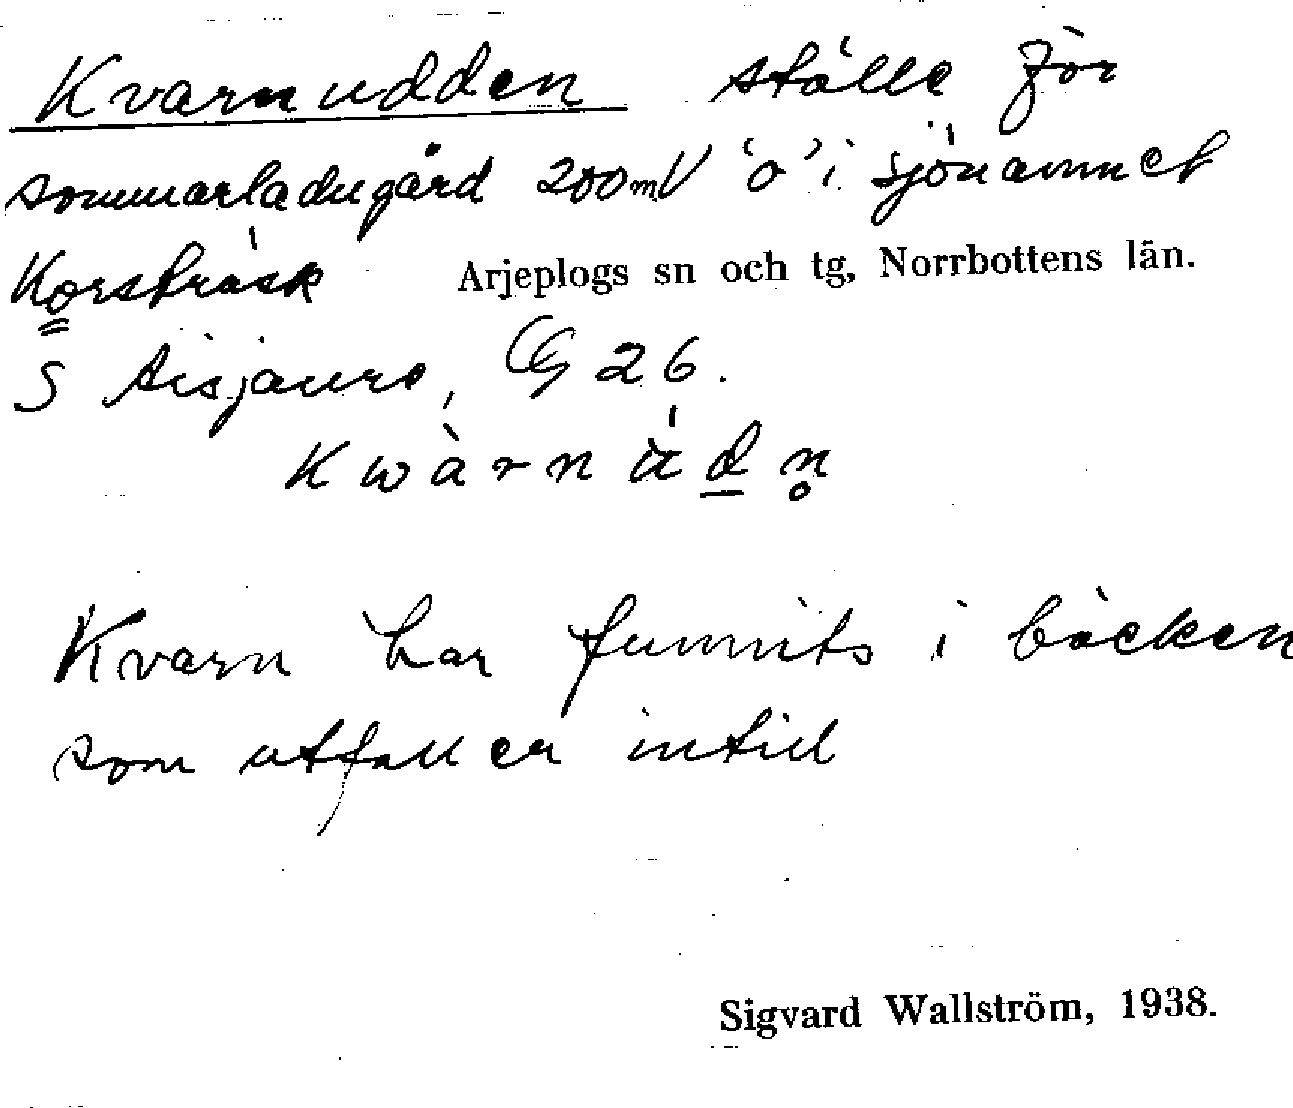 Kvarnudden ställe för
sommarladugård 200m V 'o' i sjönamnet
Korsträsk Arjeplogs sn och tg, Norrbottens län.
S Aisjaure, G 26.
Kwàrnúd̲n̥
Kvarn har funnits i bäcken
som utfaller intill
Sigvard Wallström, 1938.